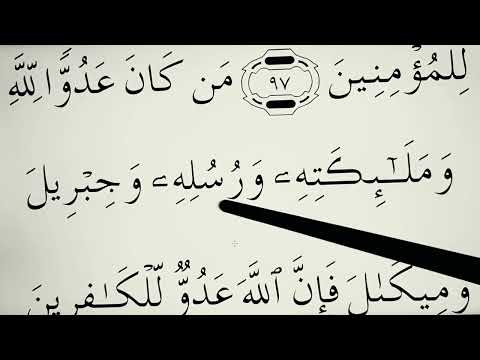 لِلْمُؤْمِنِينَ ٩٧ مَن كَانَ عَدُوًّا لِّلَّهِ
وَمَلَـٰٓئِكَتِهِۦ وَرُسُلِهِۦ وَجِبْرِيلَ
وَمِيكَىٰلَ فَإِنَّ ٱللَّهَ عَدُوٌّ لِّلْكَـٰفِرِينَ